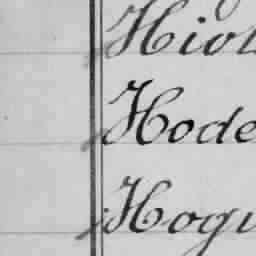 Hiot
Hode
Hogu